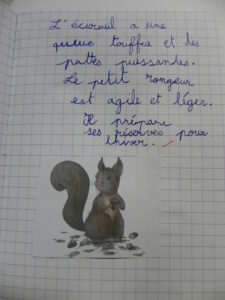 L'écureuil a une
queue touffue et des
pattes puissantes.
Le petit rongeur
est agile et léger.
Il prépare
ses réserves pour
l'hiver.